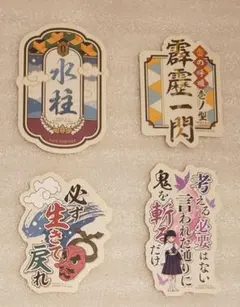 水柱
雷の呼吸 壱ノ型
霹靂一閃
必ず
生きて
戻れ
考える必要はない
言われた通りに
鬼を斬るだけ